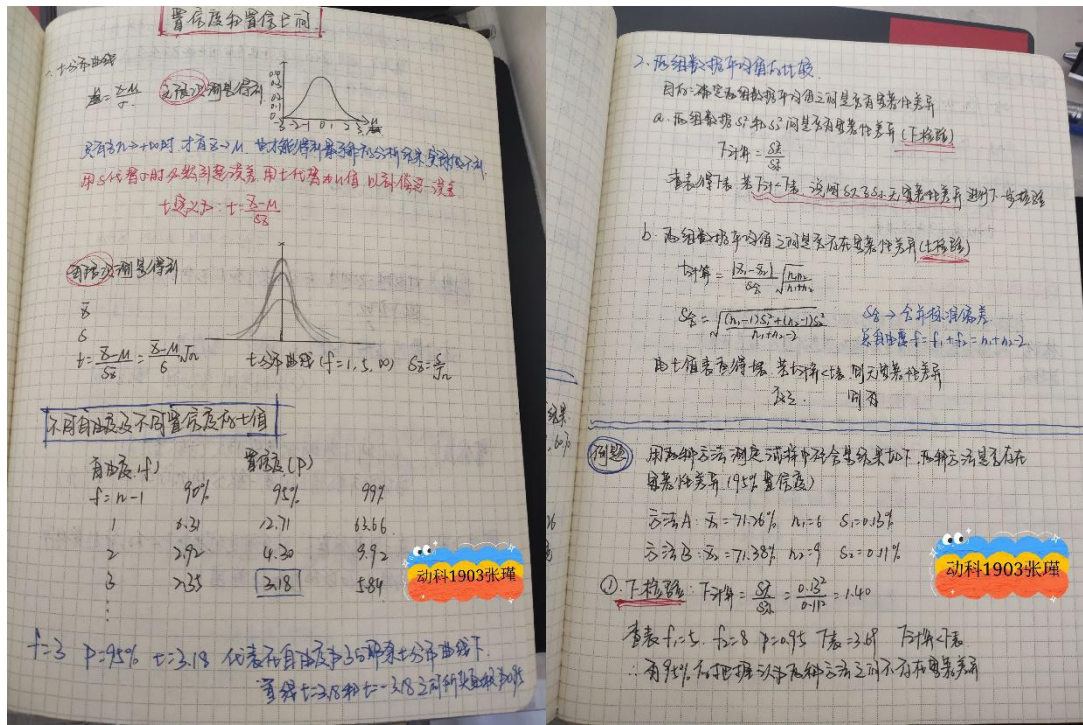 置信度和置信区间
1. t分布曲线
无限次测量得到
0.4
0.3
0.2
0.1
0
-3 -2 -1 0 1 2 3 μ
只有当n→+∞时,才有x̄→μ,
用S代替σ时必然引起误差,用t代替μ值,以补偿这一误差
t定义为: t=x̄-μ/Sx̄
有限次测量得到
x̄
S
t=x̄-μ/Sx̄=x̄-μ/S√n
t分布曲线(f=1,5,∞) Sx̄=S/√n
不同自由度及不同置信度的t值
自由度(f) 置信度(P)
f=n-1 90% 95% 99%
1 6.31 12.71 63.66
2 2.92 4.30 9.92
3 2.35 3.18 5.84
⋮
f=3 P=95% t=3.18 代表在自由度为3的那条t分布曲线下
直线t=3.18和t=-3.18之间所夹面积为0.95
动科1903张瑾
2. 两组数据平均值的比较
目的:确定两组数据平均值之间是否有显著性差异
a. 两组数据S₁²和S₂²间是否有显著性差异(F检验)
F计算=S大²/S小²
查表得F表,若F计<F表,说明S大与S小无显著性差异,进行下一步检验
b. 两组数据平均值之间是否存在显著性差异(t检验)
t计算=|x̄₁-x̄₂|/S合 √n₁n₂/n₁+n₂
S合=√(n₁-1)S₁²+(n₂-1)S₂²/n₁+n₂-2
S合→合并标准偏差
总自由度f=f₁+f₂=n₁+n₂-2
由t值表查得t表,若t计算<t表,则无显著性差异
则有
例题 用两种方法测定试样中组合量结果如下,两种方法是否存在
显著性差异(95%置信度)
方法A: x̄₁=71.26% n₁=6 S₁=0.13%
方法B: x̄₂=71.38% n₂=9 S₂=0.11%
①. F检验: F计算=S大²/S小²=0.13²/0.11²=1.40
查表f₁=5. f₂=8 P=0.95 F表=3.69 F计算<F表
∴有95%的把握认为两种方法之间不存在显著差异
动科1903张瑾